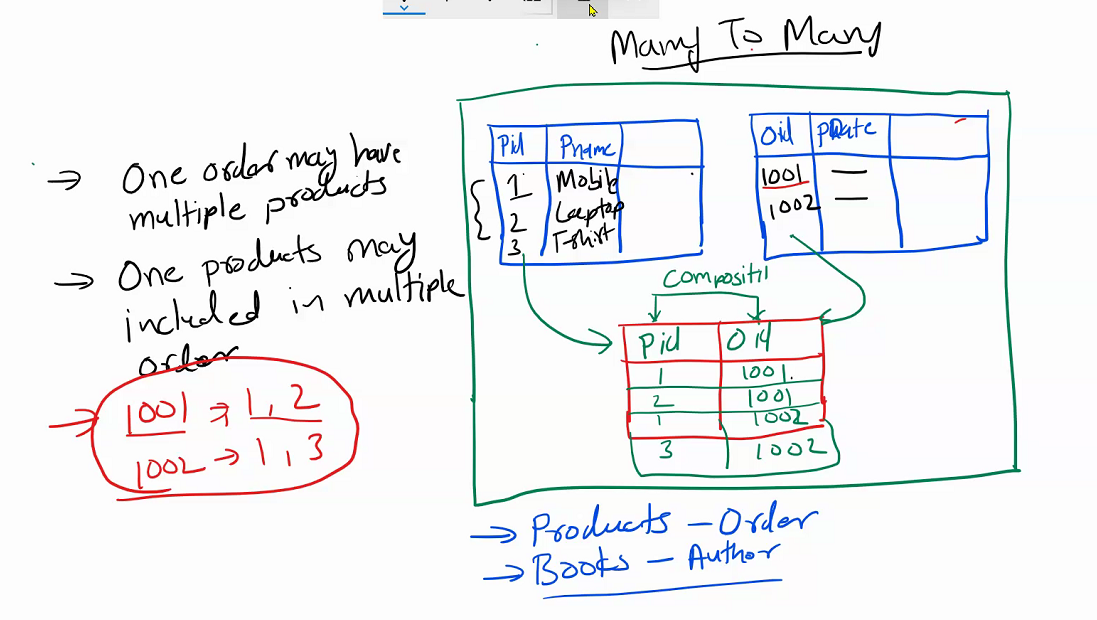 Many To Many
→ One order may have
multiple products
→ One products may
included in multiple
order
→ 1001 → 1, 2
1002 → 1, 3
Pid Pname
1 Mobile
2 Laptop
3 T-shirt
Oid
1001 —
1002 —
Composit
Pid Oid
1 1001
2 1001
1 1002
3 1002
→ Products - Order
→ Books - Author